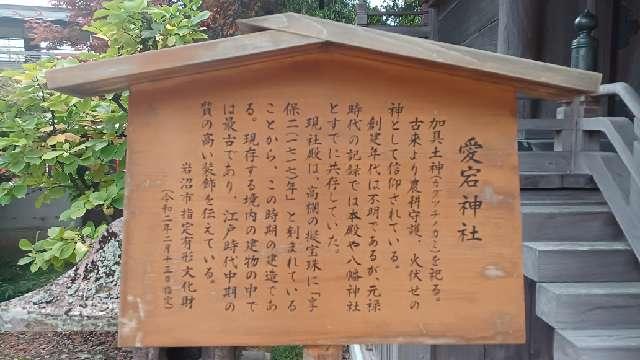 愛宕神社
加具土神(カグツチノカミ)を祀る。
古来より農耕守護、火伏せの
神として信仰されている。
創建年代は不明であるが、元禄
時代の記録では本殿や八幡神社
とすでに共存していた。
現社殿は、高欄の擬宝珠に「享
保二(一七一七)年」と刻まれている
ことから、この時期の建造であ
る。現存する境内の建物の中で
は最古であり、江戸時代中期の
質の高い装飾を伝えている。
岩沼市 指定有形文化財
(令和二年二月十三日指定)